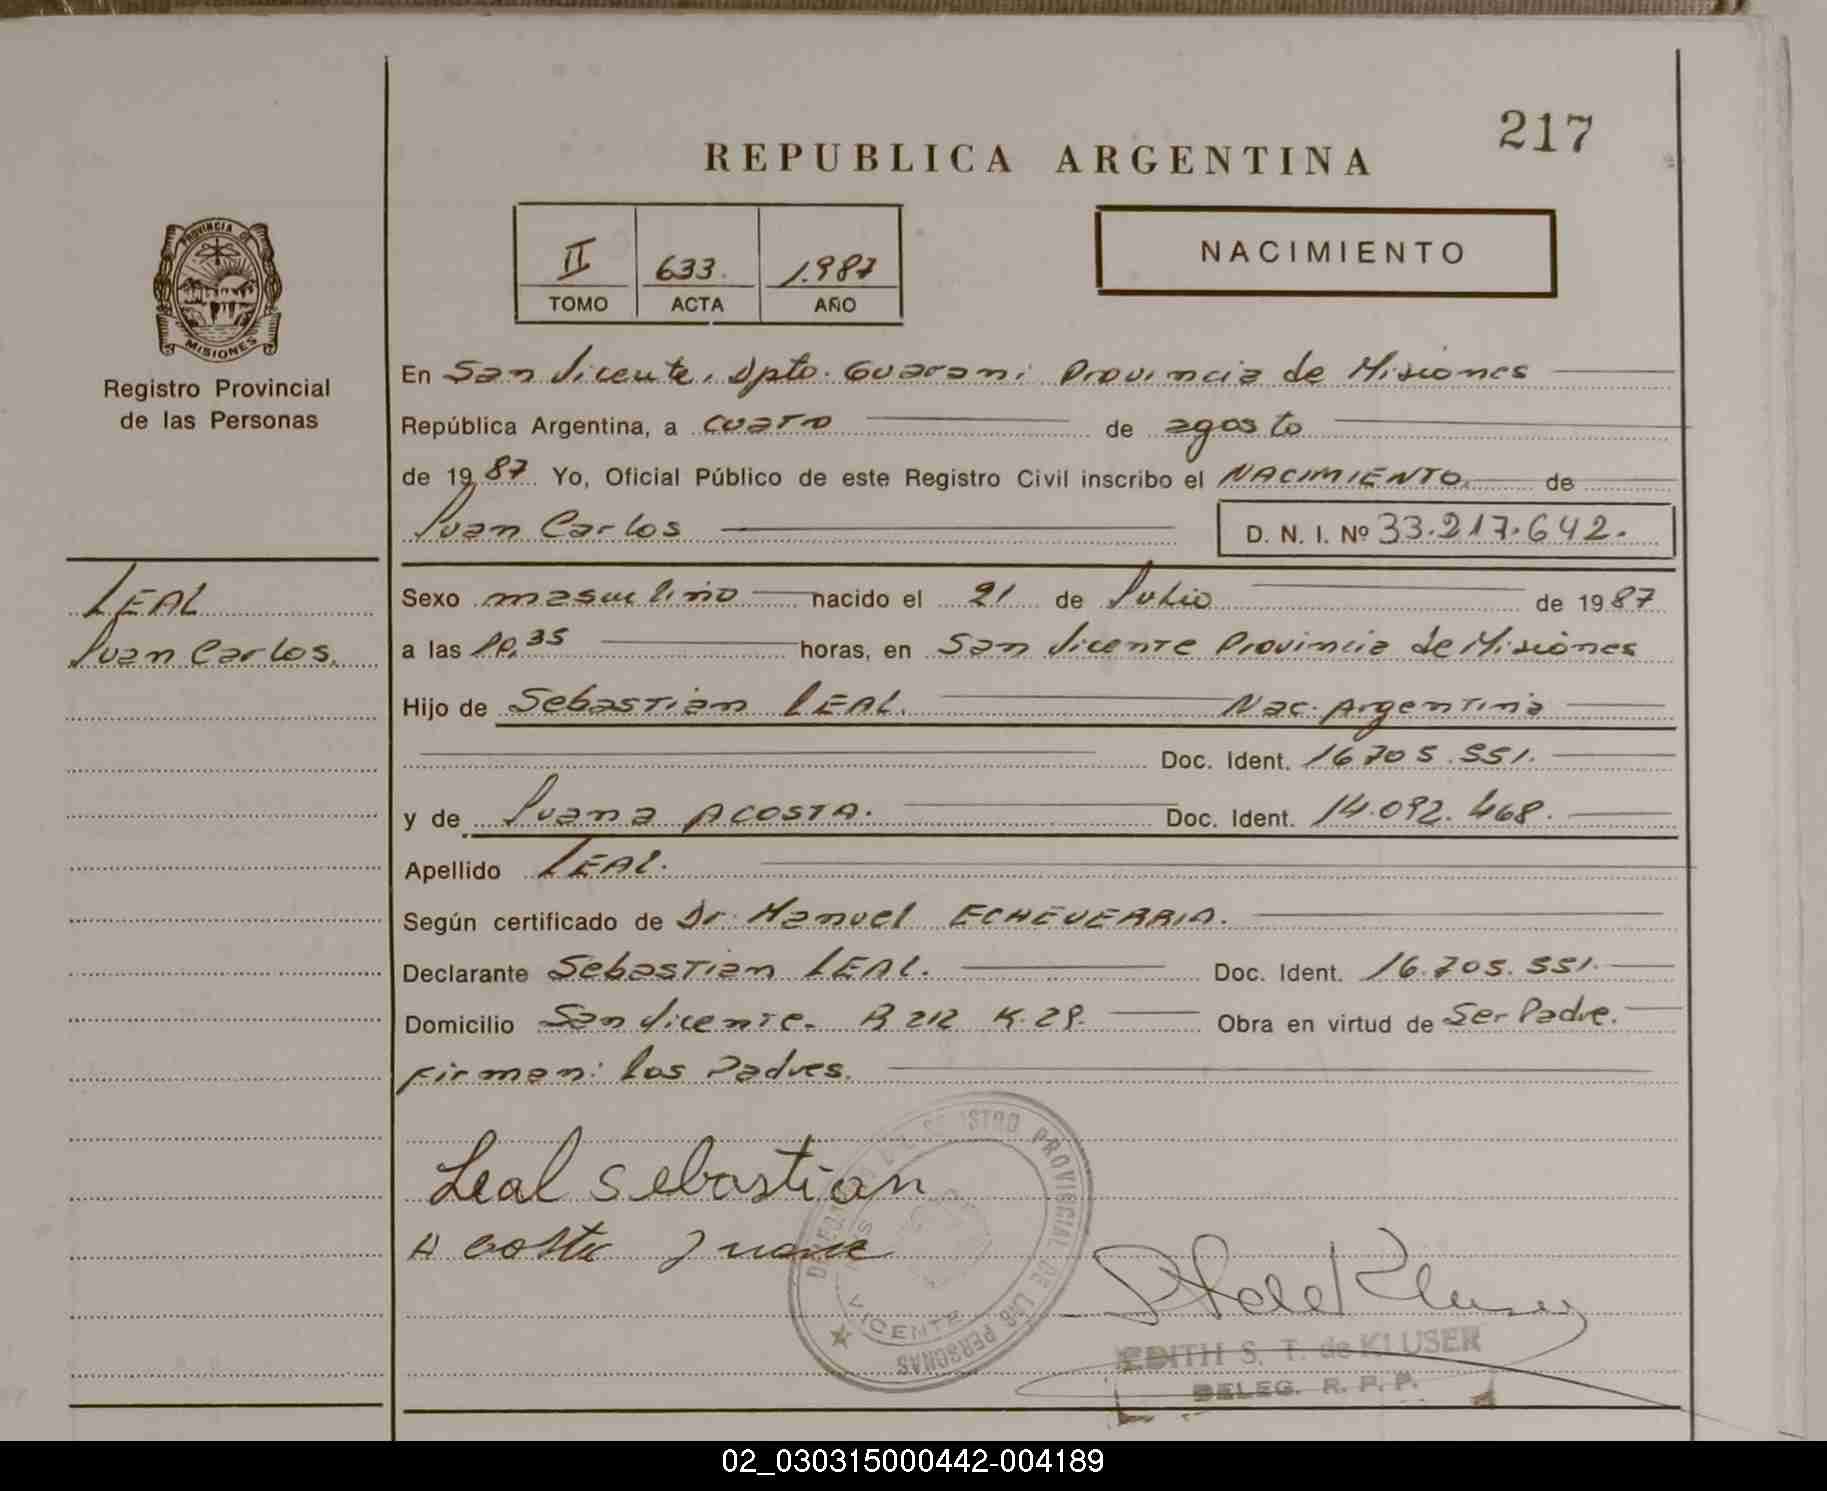 217
REPUBLICA ARGENTINA
II 633. 1.987
TOMO ACTA AÑO
NACIMIENTO
PROVINCIA DE
MISIONES
Registro Provincial
de las Personas
En San Vicente, Dpto. Guarani Provincia de Misiones
República Argentina, a cuatro de agosto
de 1987. Yo, Oficial Público de este Registro Civil inscribo el NACIMIENTO de
Juan Carlos D. N. I. Nº 33.217.642.
LEAL
Juan Carlos.
Sexo masculino nacido el 21 de Julio de 1987
a las 35 horas, en San Vicente Provincia de Misiones
Hijo de Sebastian LEAL. Nac. Argentina
Doc. Ident. 16.705.551.
y de Juana ACOSTA. Doc. Ident. 14.092.468.
Apellido LEAL.
Según certificado de Dr. Manuel ECHEVERRIA.
Declarante Sebastian LEAL. Doc. Ident. 16.705.551.
Domicilio San Vicente. R 212 K. 29. Obra en virtud de Ser Padre.
Firman: los Padres.
Leal Sebastian
Acosta Juana
REGISTRO PROVINCIAL DE LAS PERSONAS
VICENTE
EDITH S. T. de KLUSER
DELEG. R. P. P.
02_030315000442-004189